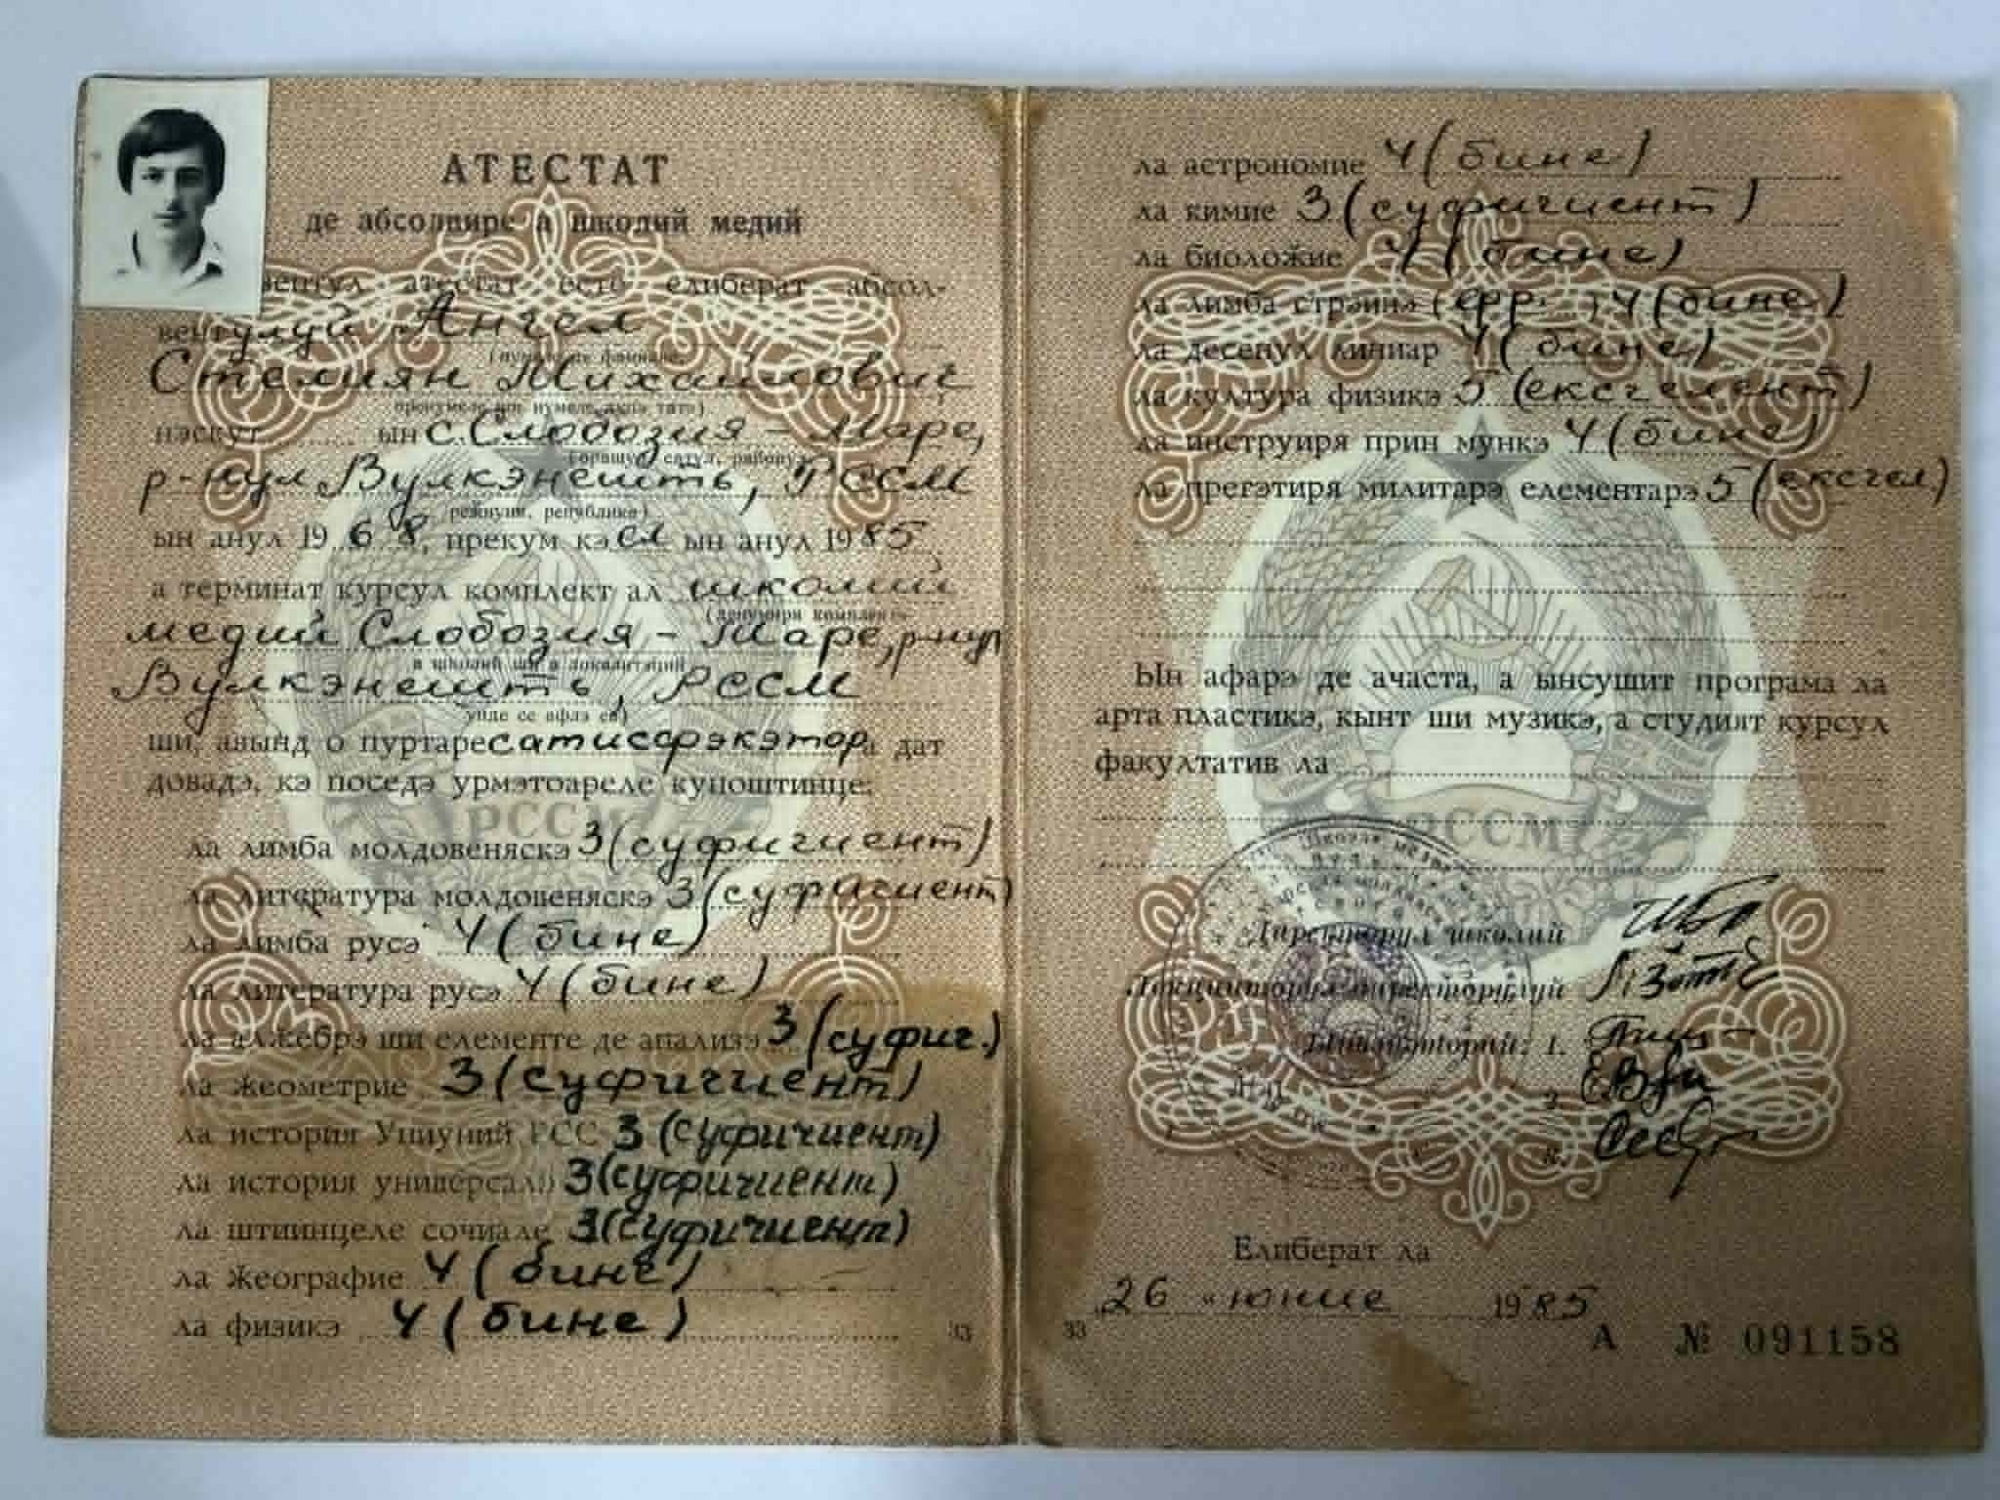 АТЕСТАТ
де абсолвире а школий медий
атестат есте елиберат абсол-
вентулуй Ангел
(нумеле де фамилие,
Стелиян Михайлович
пренумеле ши нумеле дупэ татэ)
нэскут ын с. Слобозия-Маре,
(орашул, сатул, районул,
р-нул Вулкэнешть, РССМ
режиуня, република)
ын анул 1968, прекум кэ ел ын анул 1985
а терминат курсул комплект ал школий
(денумиря комплектэ
медий Слобозия-Маре, р-нул
а школий ши а локалитэций
Вулкэнешть, РССМ
унде се афлэ еа)
ши, авынд о пуртаре сатисфэкэтор а дат
довадэ, кэ поседэ урмэтоареле куноштинце:
ла лимба молдовеняскэ 3 (суфичиент)
ла литература молдовеняскэ 3 (суфичиент)
ла лимба русэ 4 (бине)
ла литература русэ 4 (бине)
ла алжебрэ ши елементе де анализэ 3 (суфич.)
ла жеометрие 3 (суфичиент)
ла история Униуний РСС 3 (суфичиент)
ла история универсалэ 3 (суфичиент)
ла штиинцеле сочиале 3 (суфичиент)
ла жеографие 4 (бине)
ла физикэ 4 (бине)
33
РССМ
ла астрономие 4 (бине)
ла кимие 3 (суфичиент)
ла биоложие 4 (бине)
ла лимба стрэинэ (фр.) 4 (бине)
ла десенул линиар 4 (бине)
ла култура физикэ 5 (ексчелент)
ла инструиря прин мункэ 4 (бине)
ла прегэтиря милитарэ елементарэ 5 (ексчел)
Ын афарэ де ачаста, а ынсушит програма ла
арта пластикэ, кынт ши музикэ, а студият курсул
факултатив ла
РССМ
Директорул школий
Локцииторул директорулуй
Ынвэцэторий: 1.
2.
3.
Елиберат ла
26 "юние 1985
33
А № 091158